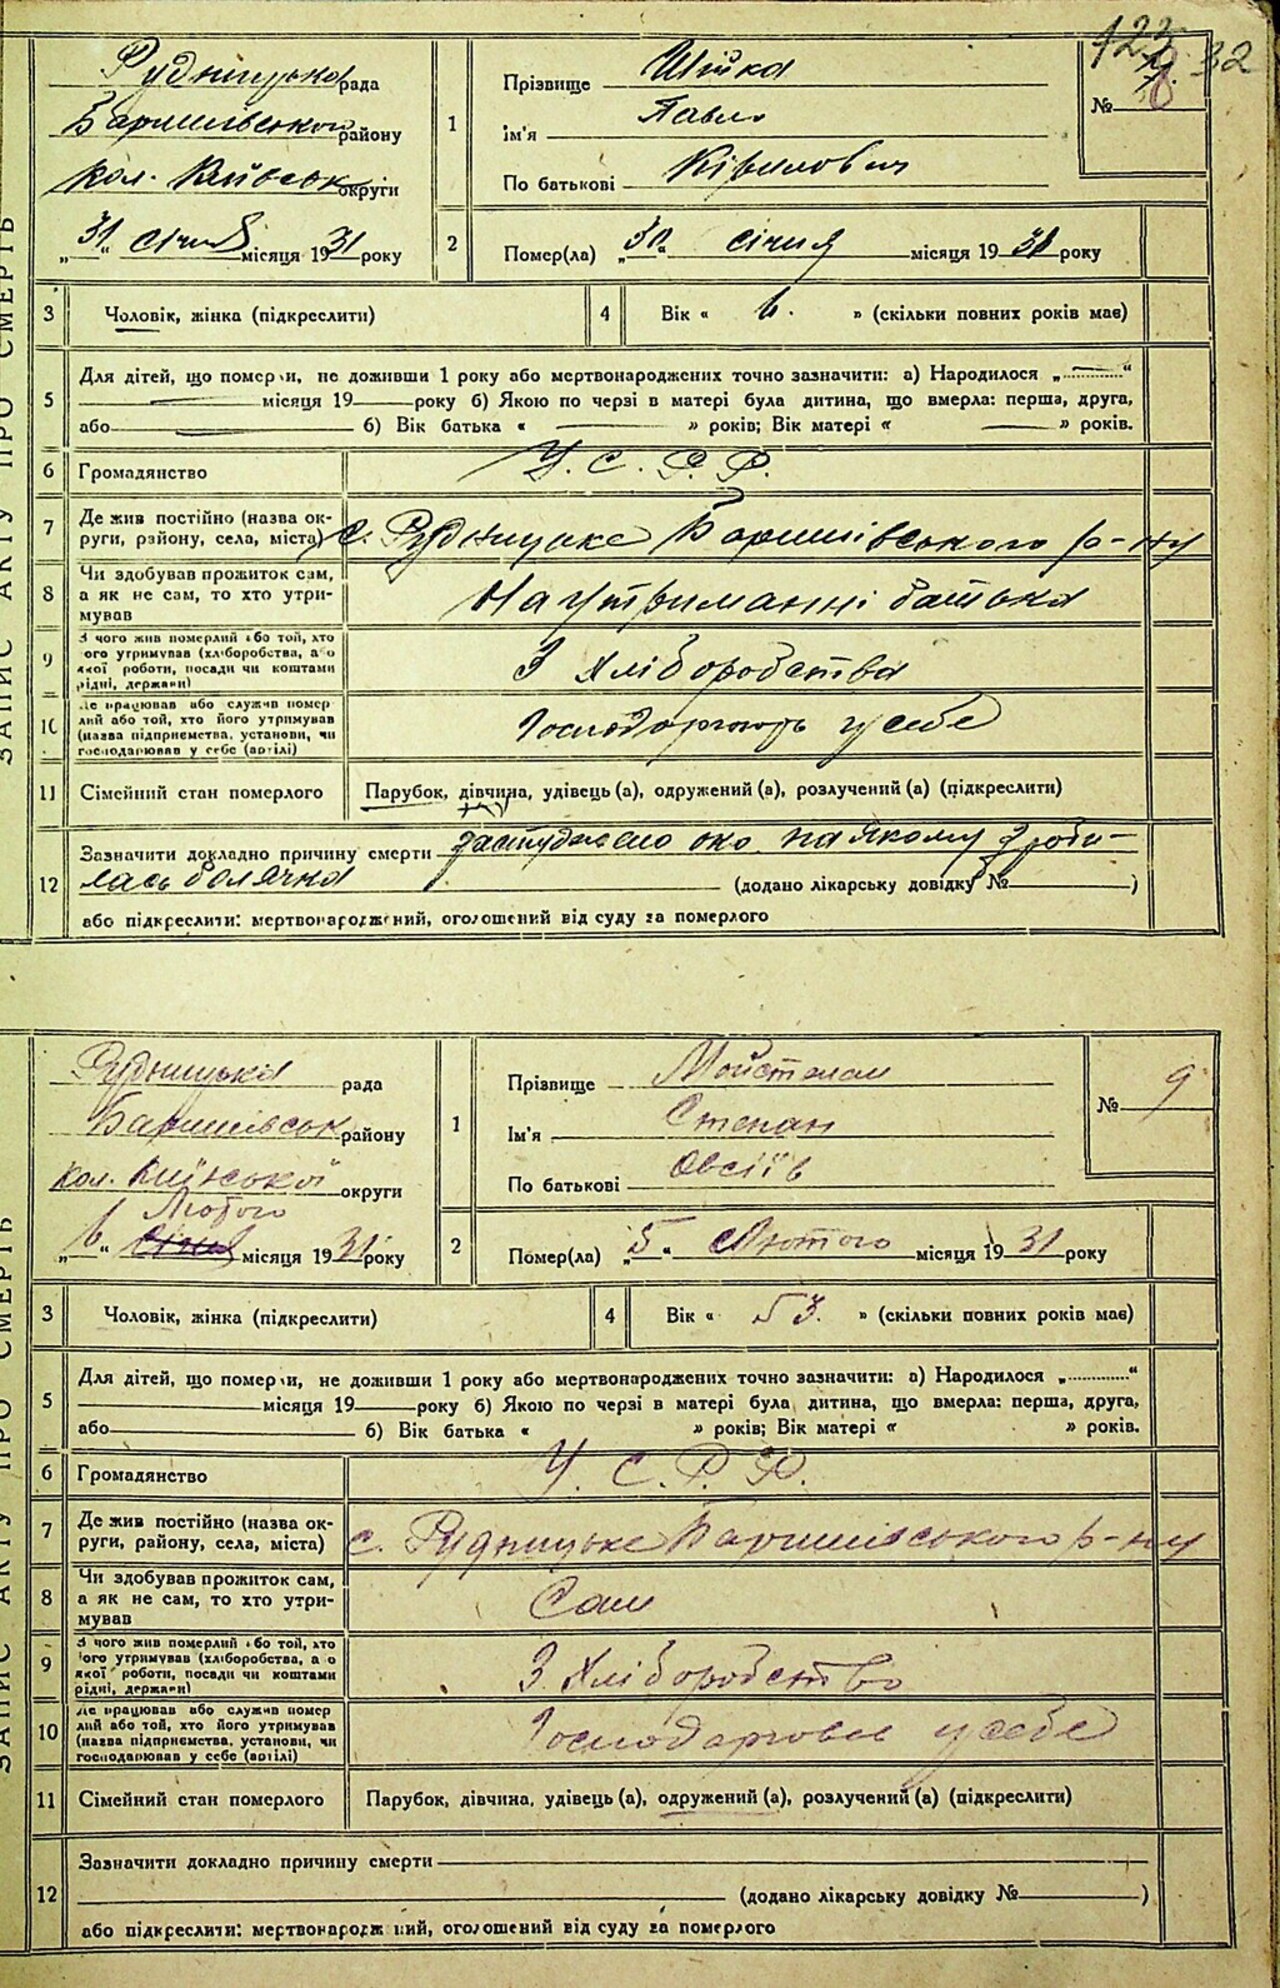 123 32
Рудницька рада
Баришівського району
кол. Київськ округи
„31“ січня місяця 1931 року
1
Прізвище Шійка
Ім'я Павло
По батькові Кірилович
№ 8
2
Помер(ла) „30“ січня місяця 1931 року
3 Чоловік, жінка (підкреслити)
4 Вік « 6. » (скільки повних років має)
5 Для дітей, що померли, не доживши 1 року або мертвонароджених точно зазначити: а) Народилося „ “
місяця 19 року б) Якою по черзі в матері була дитина, що вмерла: перша, друга,
або б) Вік батька « » років; Вік матері « » років.
6 Громадянство У. С. Р. Р.
7 Де жив постійно (назва ок-
руги, району, села, міста) с. Рудницьке Баришівського р-ну
8 Чи здобував прожиток сам,
а як не сам, то хто утри-
мував На утриманні батька
9 З чого жив померлий або той, хто
його утримував (хліборобства, а о
якої роботи, посади чи коштами
рідні, держави) З хліборобства
10 Де працював або служив помер
лий або той, хто його утримував
(назва підприємства, установи, чи
господарював у себе (артілі) Господарюють у себе
11 Сімейний стан померлого Парубок, дівчина, удівець (а), одружений (а), розлучений (а) (підкреслити)
12 Зазначити докладно причину смерти застуджено око на якому зроби-
лась болячка (додано лікарську довідку № )
або підкреслити: мертвонароджений, оголошений від суду за померлого
ЗАПИС АКТУ ПРО СМЕРТЬ
Рудницька рада
Баришівськ району
кол. Київської округи
Лютого
„6“ січня місяця 1931 року
1
Прізвище
Ім'я Степан
По батькові Овсіїв
№ 9
2
Помер(ла) „5“ Лютого місяця 1931 року
3 Чоловік, жінка (підкреслити)
4 Вік « 53. » (скільки повних років має)
5 Для дітей, що померли, не доживши 1 року або мертвонароджених точно зазначити: а) Народилося „ “
місяця 19 року б) Якою по черзі в матері була дитина, що вмерла: перша, друга,
або б) Вік батька « » років; Вік матері « » років.
6 Громадянство У. С. Р. Р.
7 Де жив постійно (назва ок-
руги, району, села, міста) с. Рудницьке Баришівського р-ну
8 Чи здобував прожиток сам,
а як не сам, то хто утри-
мував Сам
9 З чого жив померлий або той, хто
його утримував (хліборобства, а о
якої роботи, посади чи коштами
рідні, держави) З хліборобство
10 Де працював або служив помер
лий або той, хто його утримував
(назва підприємства, установи, чи
господарював у себе (артілі) Господарював у себе
11 Сімейний стан померлого Парубок, дівчина, удівець (а), одружений (а), розлучений (а) (підкреслити)
12 Зазначити докладно причину смерти
(додано лікарську довідку № )
або підкреслити: мертвонароджений, оголошений від суду за померлого
ЗАПИС АКТУ ПРО СМЕРТЬ